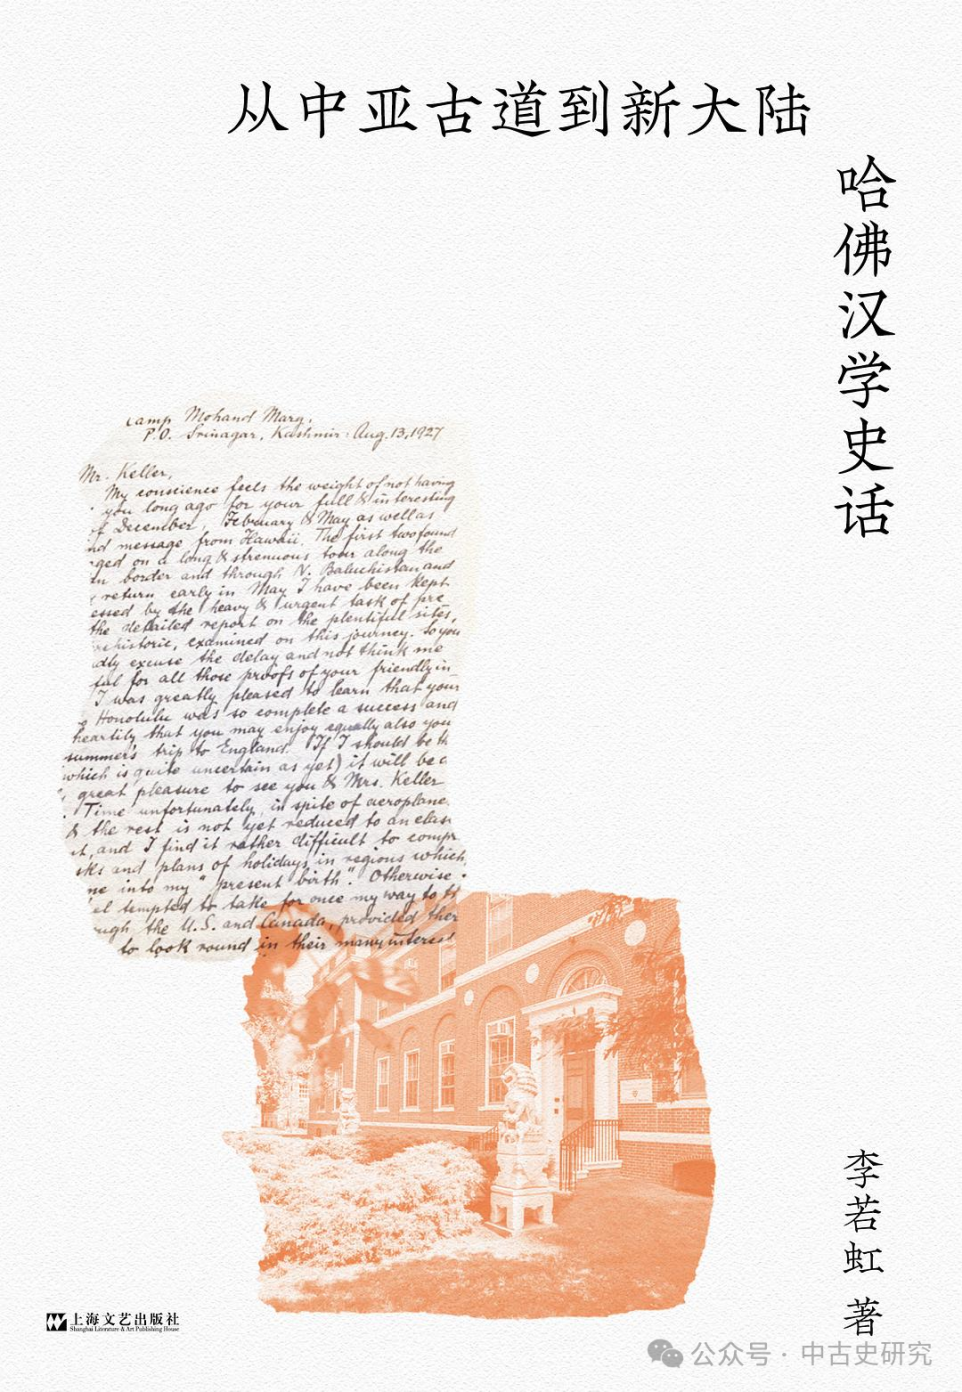 从中亚古道到新大陆
哈佛汉学史话
Camp Mohand Marg,
P.O. Srinagar, Kashmir: Aug. 13, 1927
Mr. Keller,
My conscience feels the weight of not having
you long ago for your full & interesting
of December, February & May as well as
nd message from Hawaii. The first two found
ged on a long & strenuous tour along the
an border and through N. Baluchistan, and
return early in May I have been kept
essed by the heavy & urgent task of pre
the detailed report on the plentiful sites,
ehistoric, examined on this journey. So you
dly excuse the delay and not think me
ful for all those proofs of your friendly in
I was greatly pleased to learn that your
g Honolulu was so complete a success and
heartily that you may enjoy equally also you
summer's trip to England. If I should be th
which is quite uncertain as yet) it will be a
great pleasure to see you & Mrs. Keller
. Time unfortunately, in spite of aeroplane
& the rest is not yet reduced to an elas
it, and I find it rather difficult to compr
sks and plans of holidays in regions which
me into my "present birth". Otherwise
el tempted to take for once my way to th
ugh the U.S. and Canada, provided ther
to look round in their many interest
李若虹 著
上海文艺出版社
Shanghai Literature & Art Publishing House
公众号·中古史研究